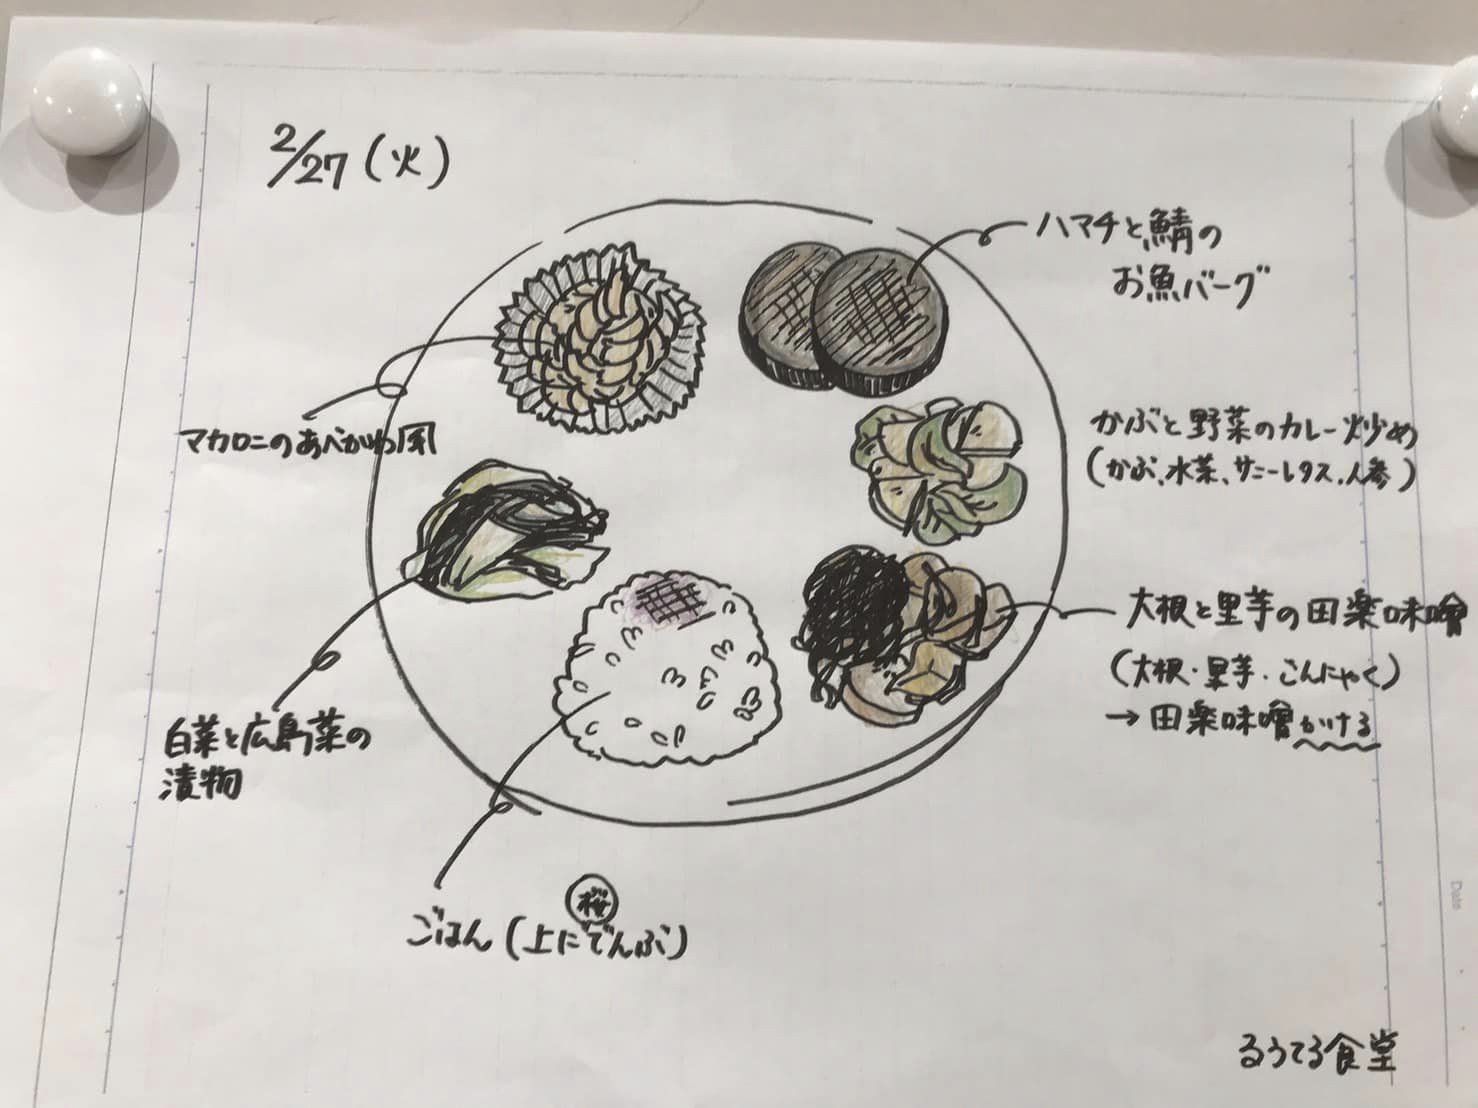 2/27(火)
ハマチと鯖の
お魚バーグ
マカロニのあべかわ風
かぶと野菜のカレー炒め
(かぶ、水菜、サニーレタス、人参)
大根と里芋の田楽味噌
(大根・里芋・こんにゃく)
→田楽味噌かける
白菜と広島菜の
漬物
桜
ごはん(上にでんぶ)
Date
るうてる食堂